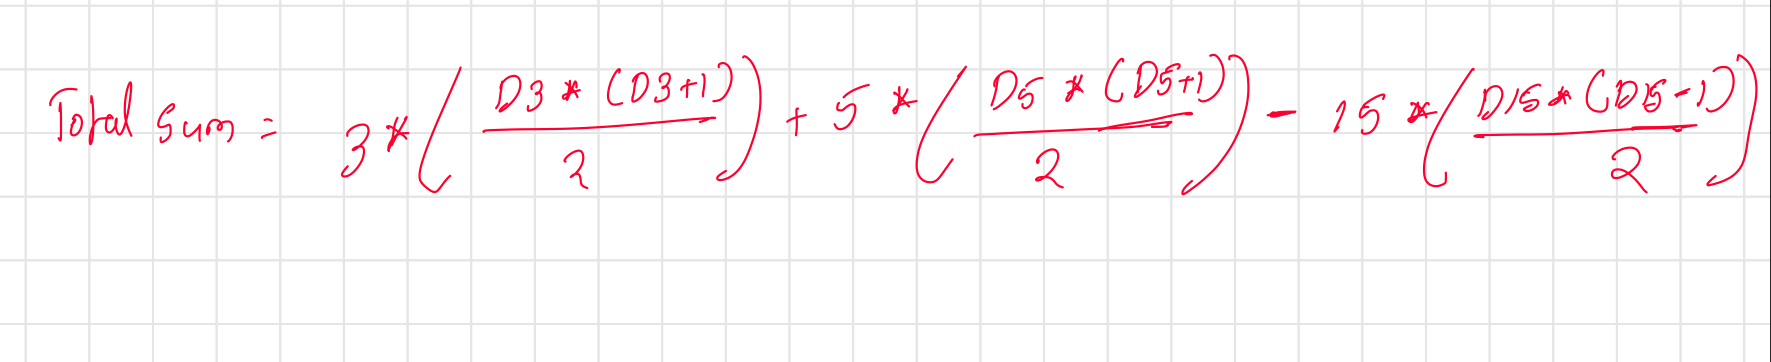 Total Sum = 3 * ( D3 * (D3+1) / 2 ) + 5 * ( D5 * (D5+1) / 2 ) - 15 * ( D15 * (D15-1) / 2 )